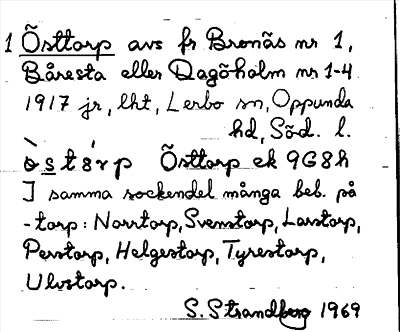 1 Östtorp avs fr Bronäs nr 1,
Båresta eller Dagöholm nr 1-4
1917 jr, lht, Lerbo sn, Oppunda
hd, Söd. l.
ò̱stórp Östtorp ek 9G8h
I samma sockendel många beb. på
-torp: Norrtorp, Svenstorp, Larstorp,
Perstorp, Helgestorp, Tyrestorp,
Ulvstorp.
S. Strandberg 1969